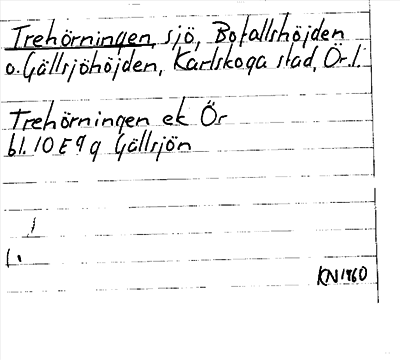 Trehörningen, sjö, Bofallshöjden
o. Gällsjöhöjden, Karlskoga stad, Ör. l.
Trehörningen ek Ör
bl. 10 E 9 g Gällsjön
KN1960